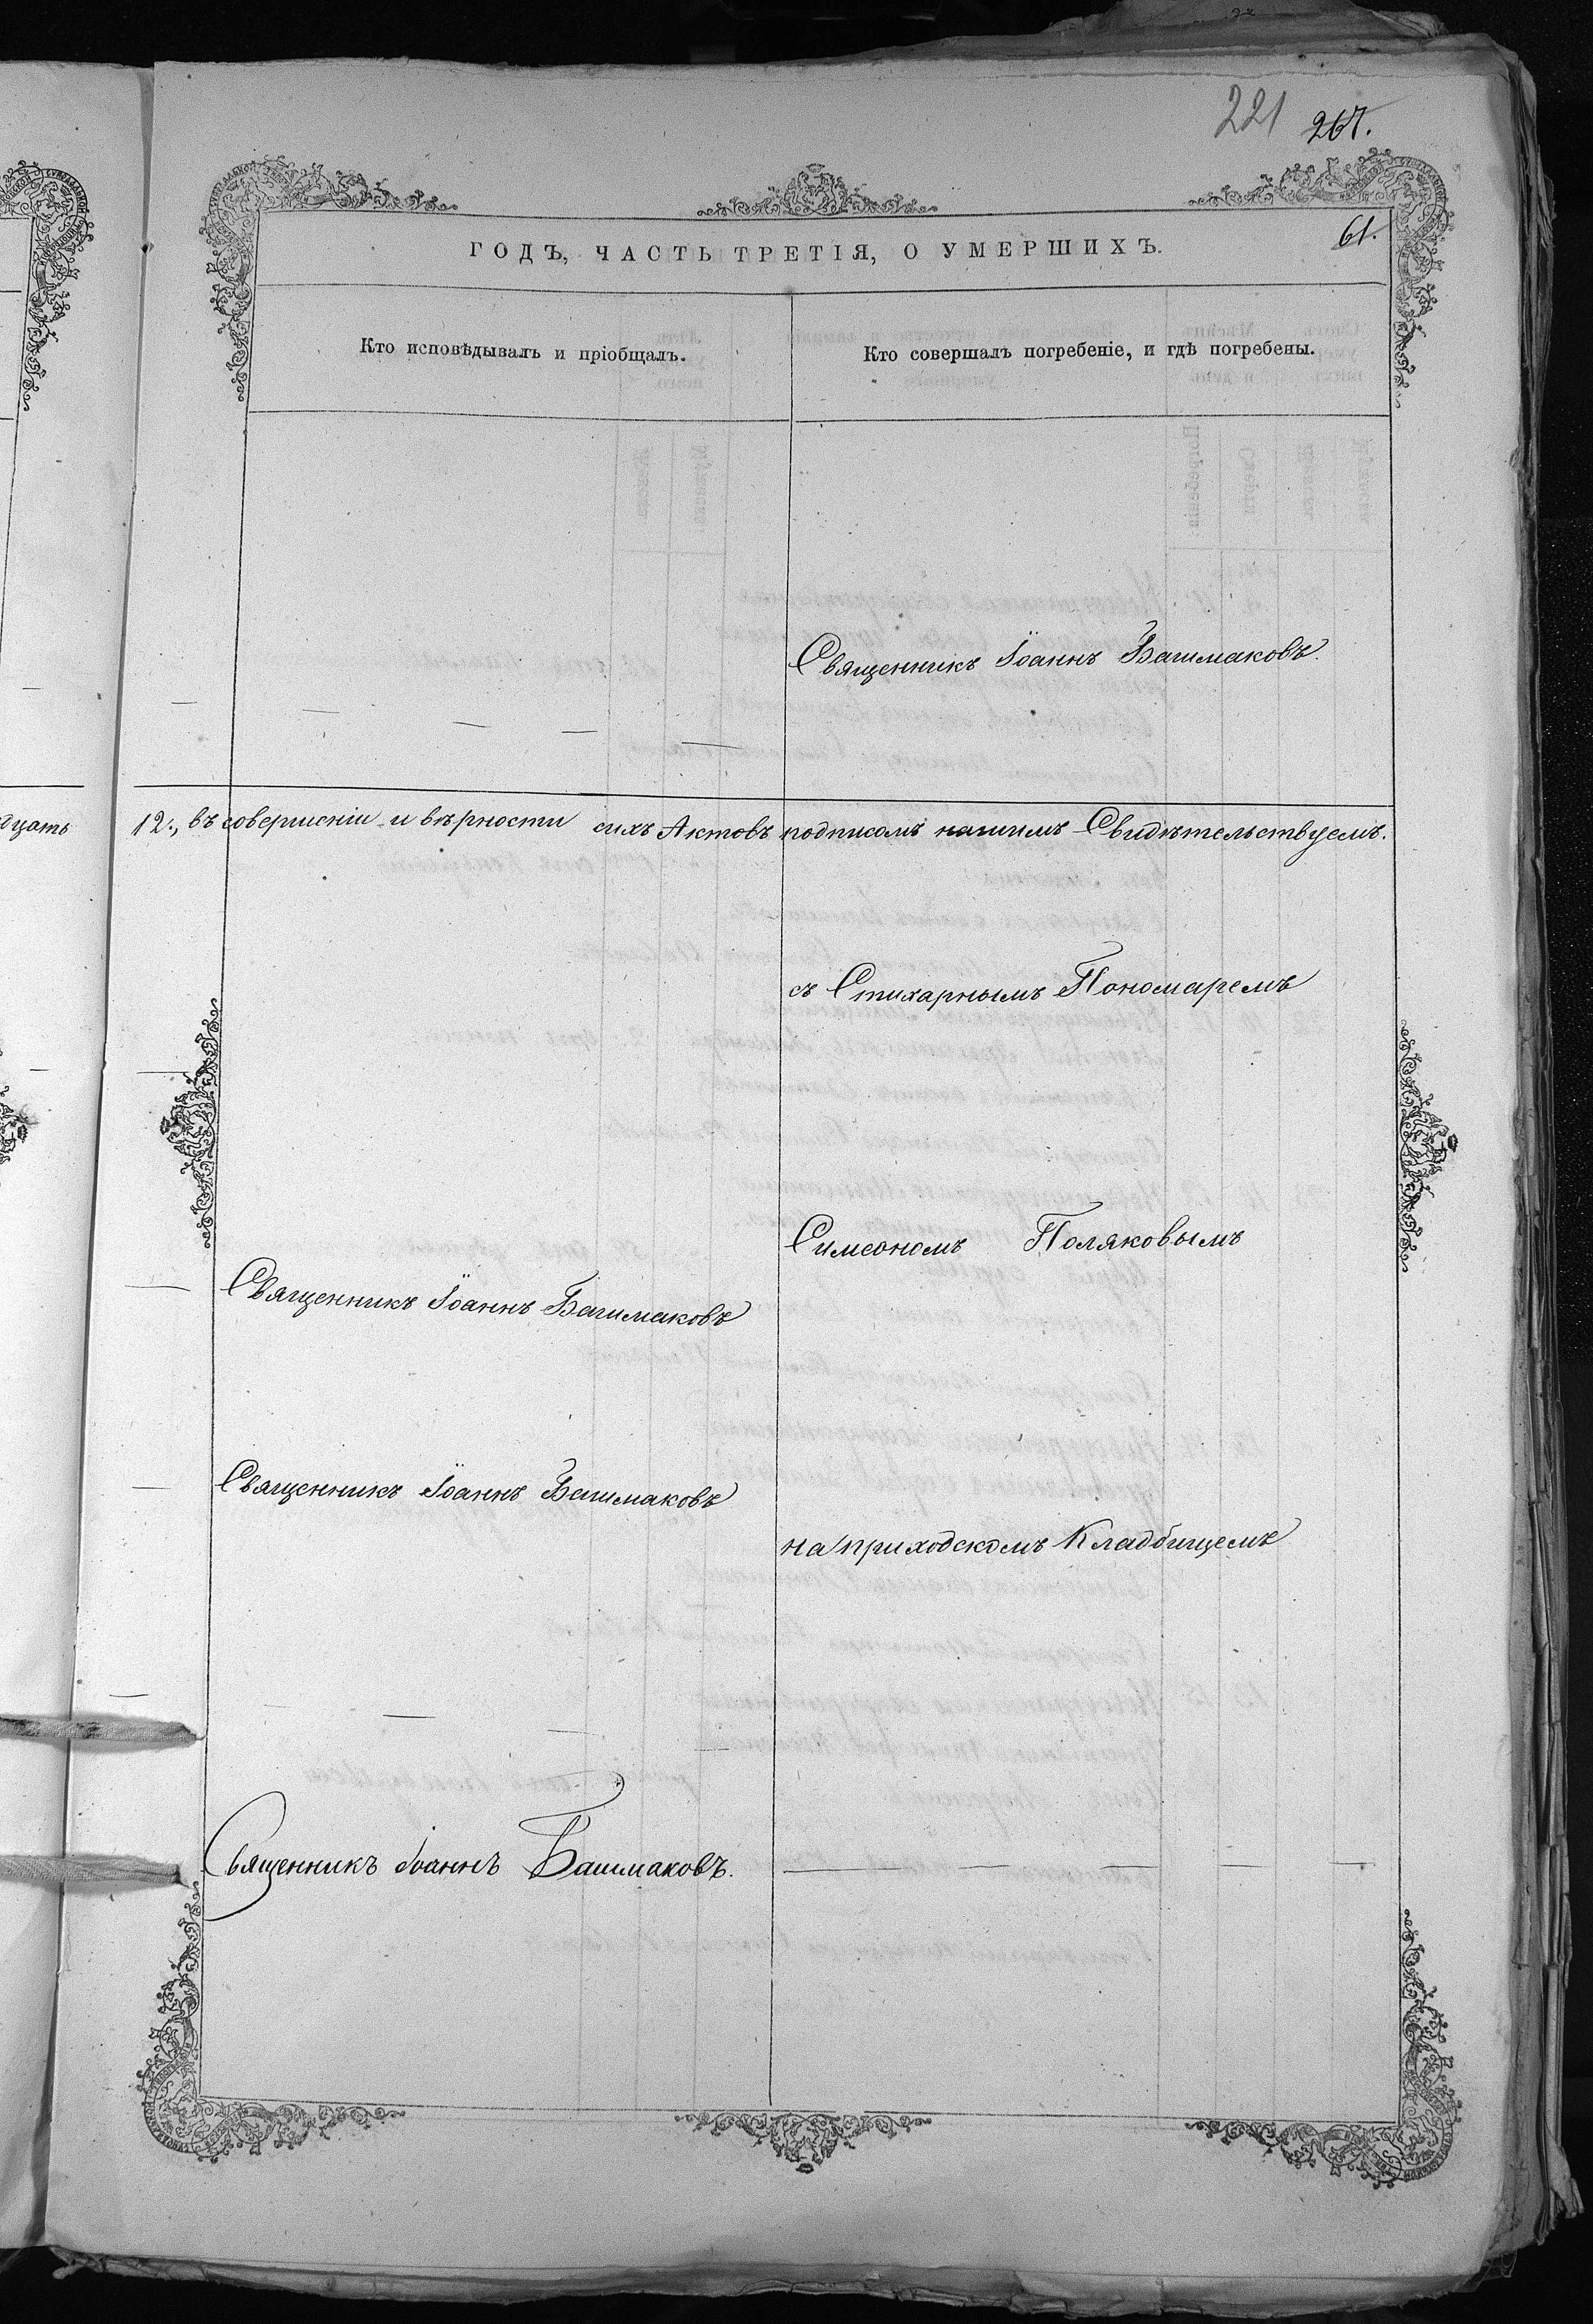 221 267.
61.
ГОДЪ, ЧАСТЬ ТРЕТІЯ, О УМЕРШИХЪ.
Кто исповѣдывалъ и пріобщалъ.
Кто совершалъ погребеніе, и гдѣ погребены.
Священникъ Іоаннъ Башмаковъ.
дцать
12., въ совершеніи и вѣрности сихъ Актовъ подписомъ нашимъ Свидѣтельствуемъ.
съ Стихарнымъ Пономаремъ
Симеономъ Поляковымъ
Священникъ Іоаннъ Башмаковъ
Священникъ Іоаннъ Башмаковъ
на приходскомъ Кладбищемъ
Священникъ Іоаннъ Башмаковъ.